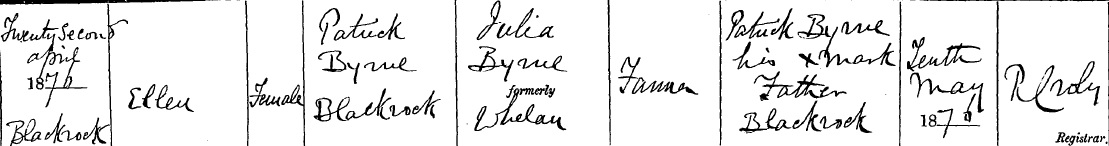 Twenty Second
april
1876
Blackrock
Ellen
Female
Patrick
Byrne
Blackrock
Julia
Byrne
formerly
Whelan
Farmer
Patrick Byrne
his x mark
Father
Blackrock
Tenth
May
1876
R Croly
Registrar.